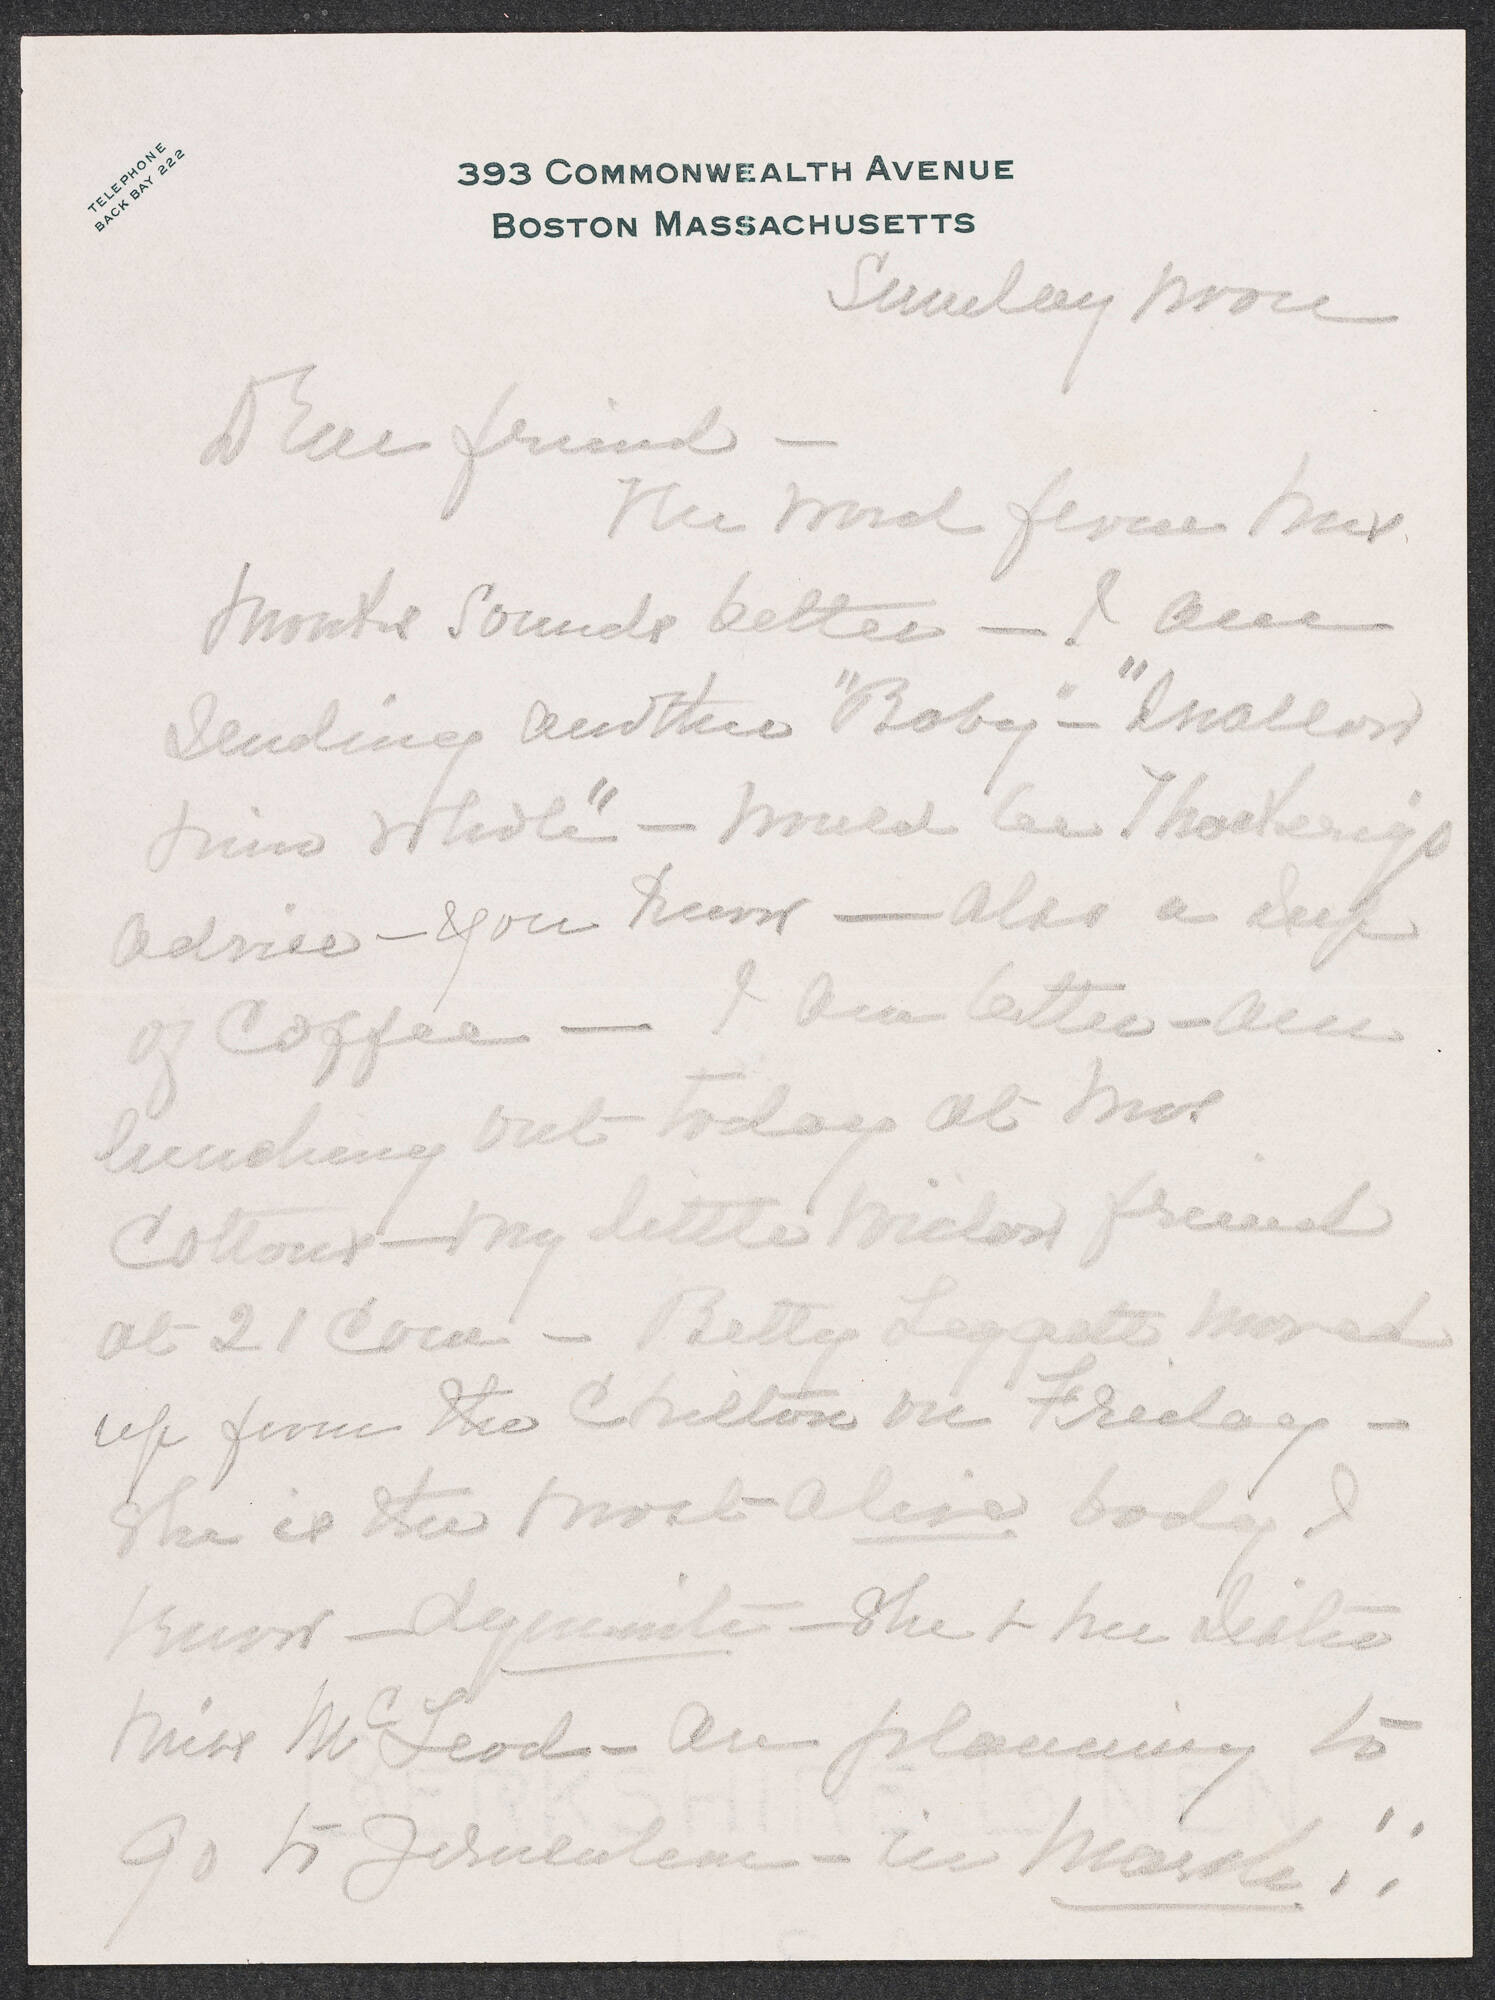 TELEPHONE
BACK BAY 222
393 COMMONWEALTH AVENUE
BOSTON MASSACHUSETTS
Sunday noon
Dear friend —
The word from Mrs.
sounds better — I am
sending another "Baby" — "Swallow
him whole" — would be
advice — you know — also a cup
of Coffee — I am better — am
lunching out today at Mrs
Cottons — my little widow friend
at 21 Com — Betty Leggett moved
up from the Chilton on Friday —
She is the most alive body I
know — dynamite — She + her sister
Miss McLeod — are planning to
go to Jerusalem — in March!!